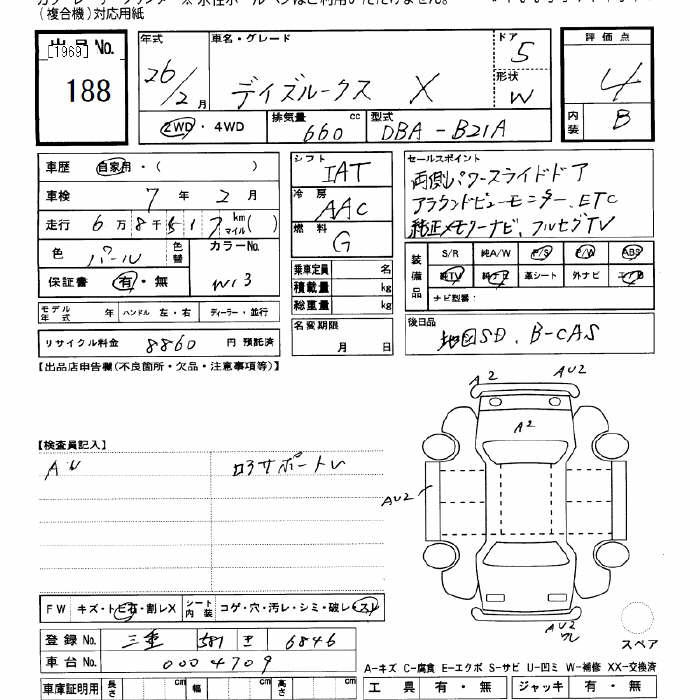 (複合機)対応用紙
出品No.
[1969]
188
年式
26/2月
車名・グレード
デイズルークス X
ドア
5
形状
W
評価点
4
内装
B
2WD・4WD
排気量
660 cc
型式
DBA-B21A
車歴 自家用・( )
車検 7年 2月
走行 6万8千517 km マイル( )
色 パール 色替
カラーNo.
W13
保証書 有・無
モデル年式 年 ハンドル 左・右 ディーラー・並行
リサイクル料金 8860 円 預託済
シフト
IAT
冷房
AAC
燃料
G
乗車定員 名
積載量 kg
総重量 kg
名変期限
月 日
セールスポイント
両側パワースライドドア
アラウンドビューモニター、ETC
純正メモリーナビ、フルセグTV
装備品
S/R 純A/W P/S P/W ABS
純TV 純ナビ 革シート 外ナビ エアB
ナビ型番:
後日品
地図SD、B-CAS
【出品店申告欄(不良箇所・欠品・注意事項等)】
【検査員記入】
A2
AU2
A2
AU2
AU2
スペア
FW キズ・トビ石・割レX シート内装 コゲ・穴・汚レ・シミ・破レ・スレ
登録No. 三重 581 6846
車台No. 0004709
車庫証明用 長さ cm 幅 cm 高さ cm
A-キズ C-腐食 E-エクボ S-サビ U-凹ミ W-補修 XX-交換済
工具 有・無 ジャッキ 有・無